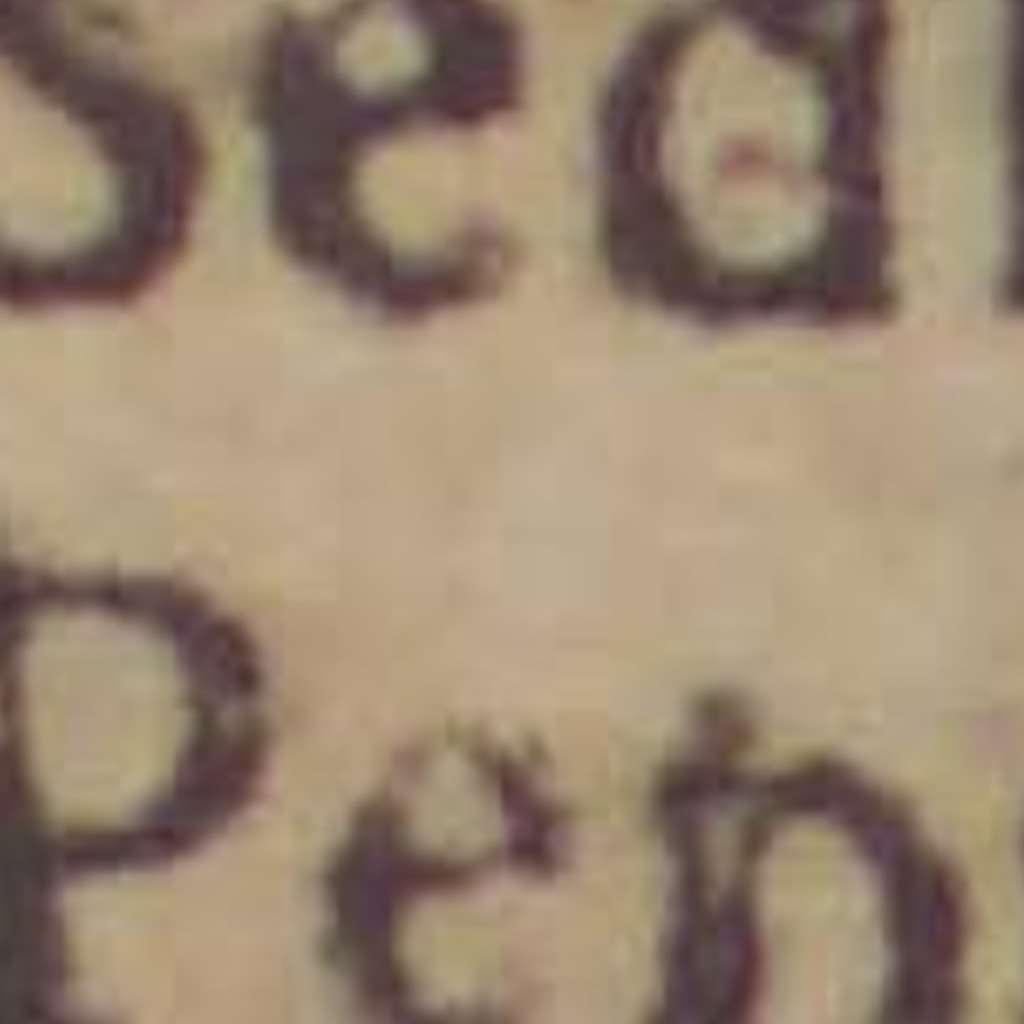 Sea
Pen